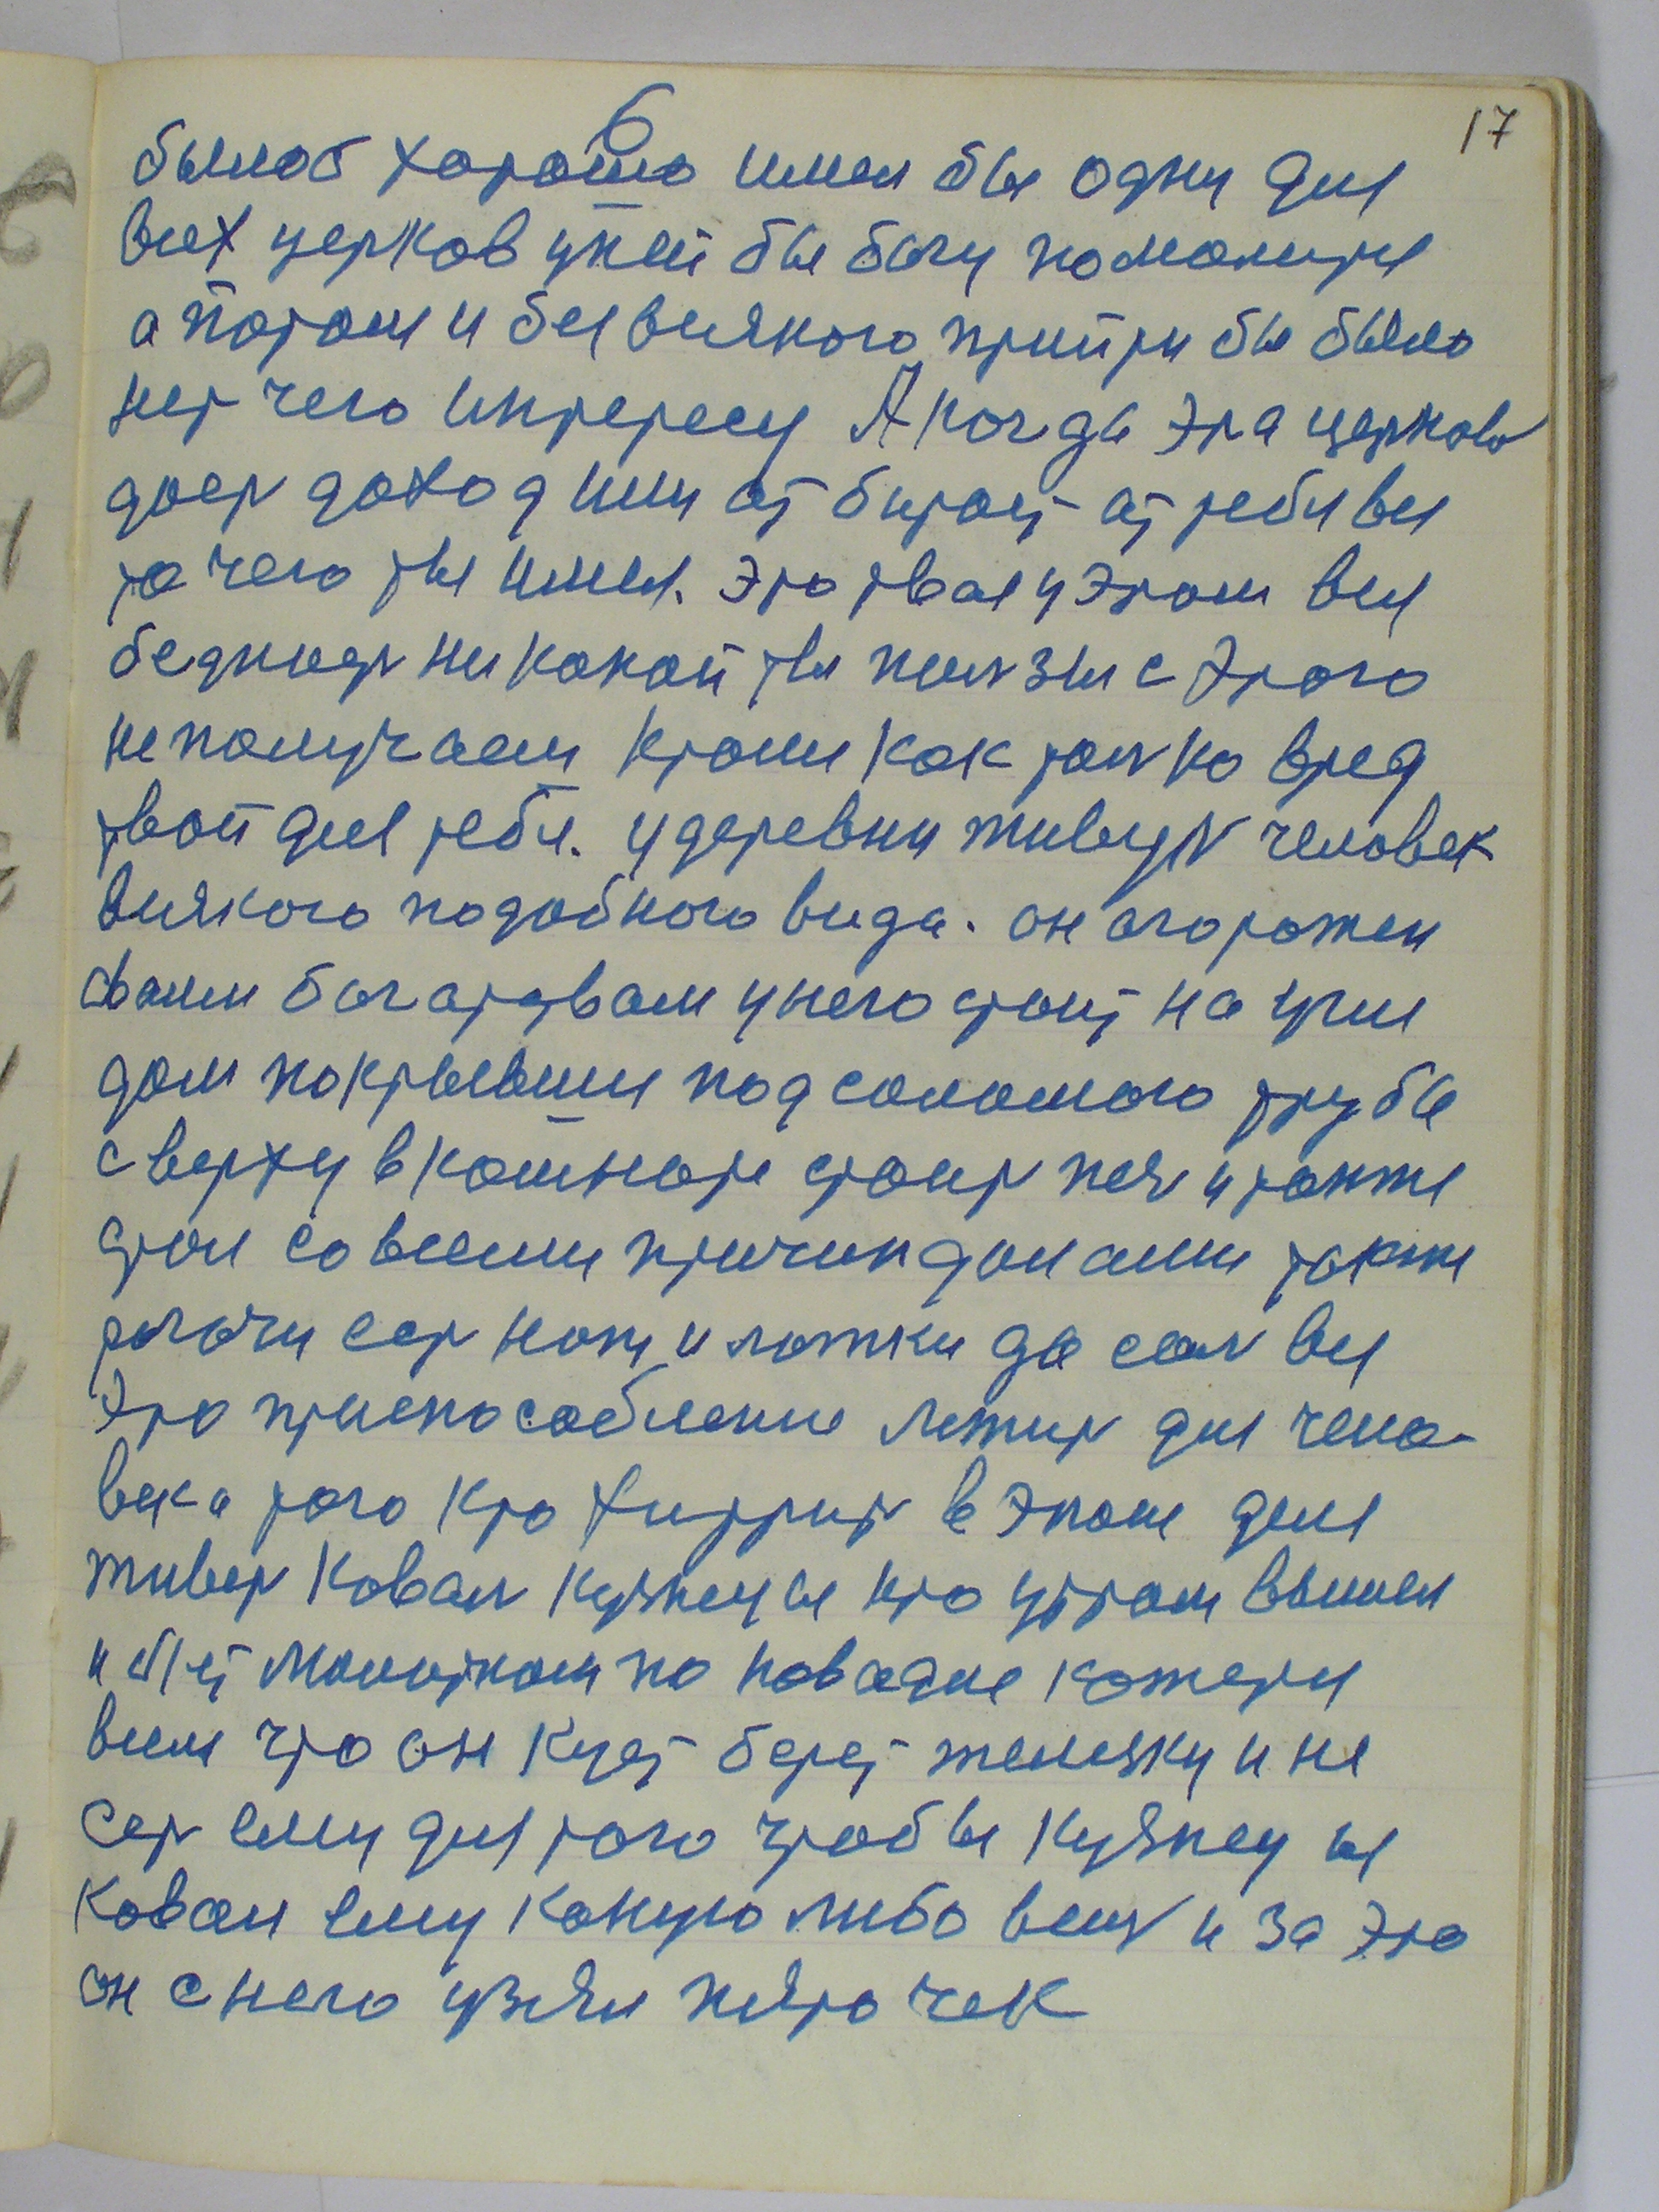 17
6
былоб хорошо имел бы одну для
всех церков у ней бы богу помолитсе
а потом и без всякого прийти бы было
нет чего интересу А когда эта церковь
дает доход или отбирает от тебя все
то чего ты имел. это твая у этом вся
бедность никакой ты пользы с этого
не получаеш кроми как только вред
твой для тебя. у деревни живуть человек
всякого подобного вида. он огорожен
своим богатством у него стоит на угле
дом покрывши под соломою труба
с верху в комнате стоить печ и также
стол со всеми причиндалами также
рогачи есть ножи и ложки да соль все
это приспособление лежить для чело-
века того кто хитрить в этом деле
живеть коваль кузнец ы кто утром вышел
и бьет молотком по ковадле кажется
всем что он кует берет железку и не
сеть ему для того чтобы кузнец ы
ковал ему какую либо вещь и за это
он с него узял пято чек